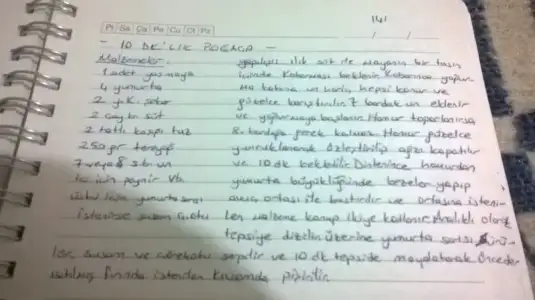 Pt Sa Ça Pe Cu Ct Pz
141
- 10 DK'LIK POĞAÇA -
Malzemeler.
1 adet yaş maya
4 yumurta
2 y.k. şeker
2 çay b. süt
2 tatlı kaşığı tuz
250 gr tereyağ
7 veya 8 s.b. un
İç için peynir vb.
üstü için yumurta sarısı
istenirse susam ç.otu
yapılışı ılık süt ile mayanın bir tasın
içinde kabarması beklenir. Kabarması yapılır
kabına un hariç hepsi konur ve
güzelce karıştırılır. 7 bardak un eklenir
ve yoğurmaya başlanır. Hamur toparlanırsa
8. bardağa gerek kalmaz. Hamur güzelce
yumuklanarak özleştirilip ağzı kapatılır
ve 10 dk bekletilir. Dinlenince hamurdan
yumurta büyüklüğünde bezeler yapıp
avuç ortası ile bastırılır ve ortasına isteni-
len malzeme konup ikiye katlanır. Aralıklı olarak
tepsiye dizilir. Üzerine yumurta sarısı sürü-
lür, susam ve çörekotu serpilir ve 10 dk tepside mayalanarak önceden
ısıtılmış fırında istenilen kıvamda pişirilir.